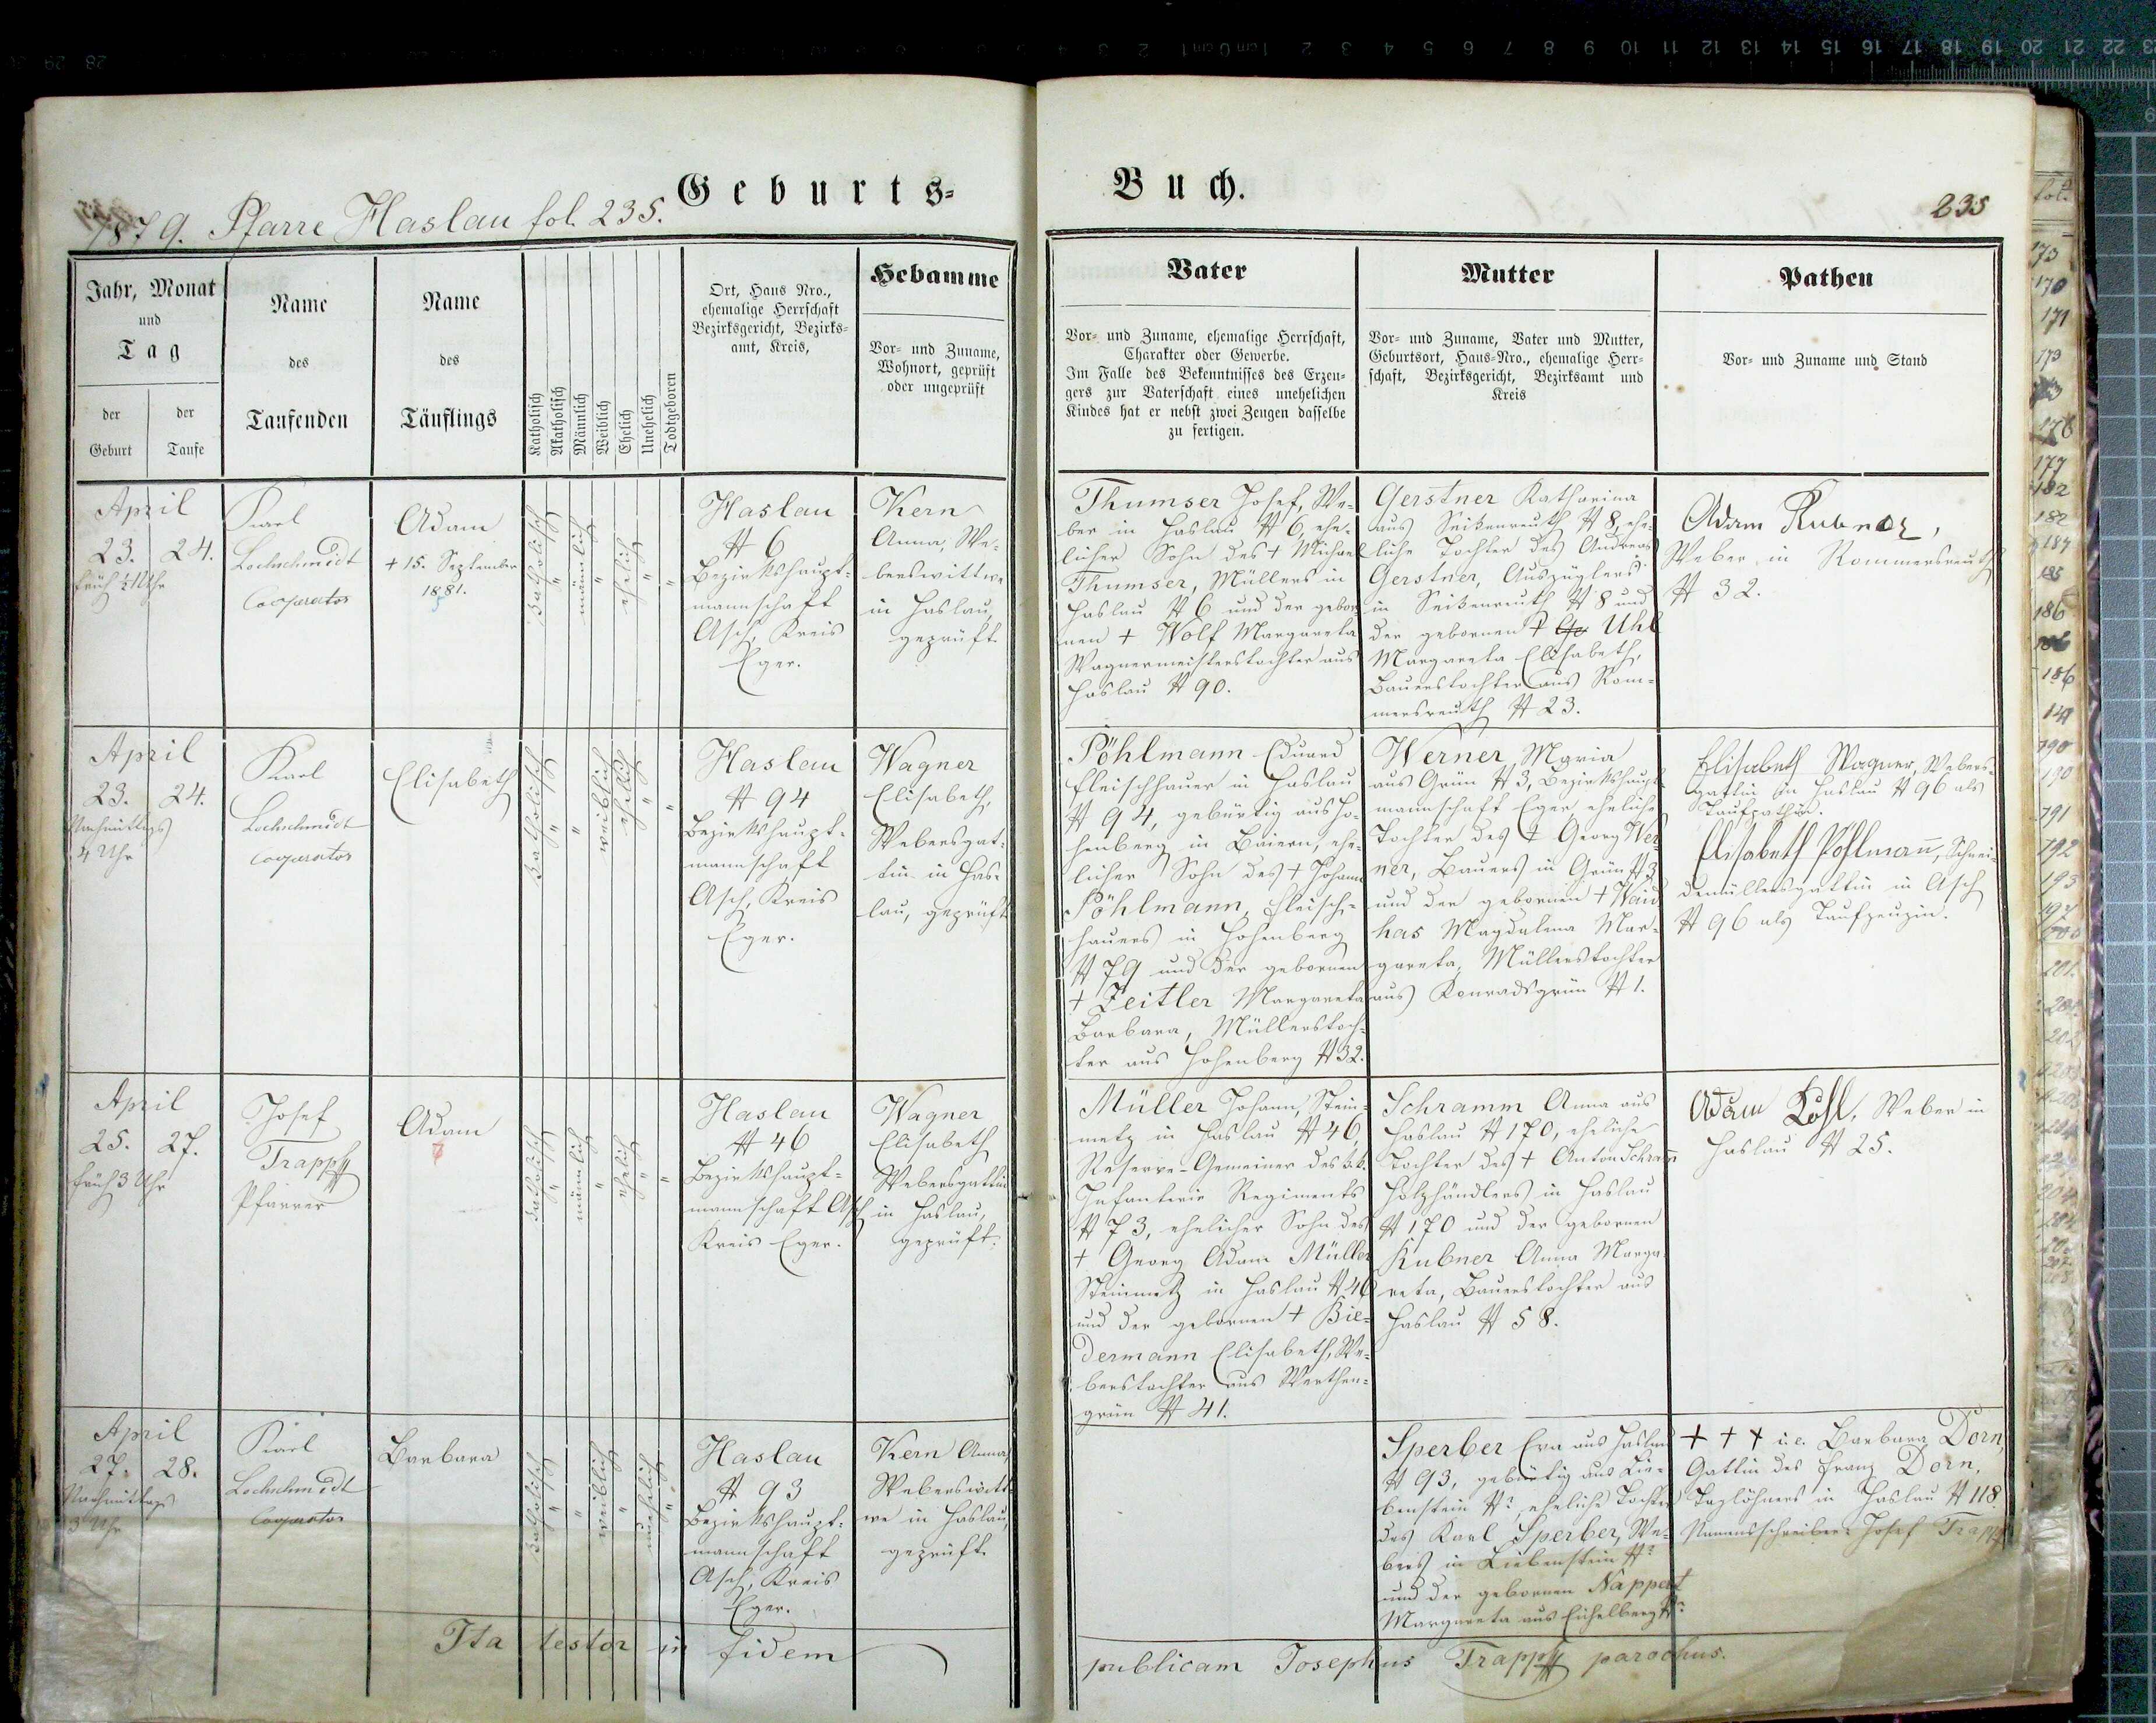 Geburts-
Buch.
1879. Pfarre Haslau fol. 235.
235
Jahr, Monat
und
Tag
der
Geburt
der
Taufe
Name
des
Taufenden
Name
des
Täuflings
Katholisch
Akatholisch
Männlich
Weiblich
Ehelich
Unehelich
Todtgeboren
Ort, Haus Nro.,
ehemalige Herrschaft
Bezirksgericht, Bezirks-
amt, Kreis,
Hebamme
Vor- und Zuname,
Wohnort, geprüft
oder ungeprüft
Vater
Vor- und Zuname, ehemalige Herrschaft,
Charakter oder Gewerbe.
Im Falle des Bekenntnisses des Erzeu-
gers zur Vaterschaft eines unehelichen
Kindes hat er nebst zwei Zeugen dasselbe
zu fertigen.
Mutter
Vor- und Zuname, Vater und Mutter,
Geburtsort, Haus-Nro., ehemalige Herr-
schaft, Bezirksgericht, Bezirksamt und
Kreis
Pathen
Vor- und Zuname und Stand
April
23. 24.
früh ½1 Uhr
Karl
Lochschmidt
Cooperator
Adam
+ 15. September
1881.
katholisch
"
männlich
"
ehelich
"
"
Haslau
# 6
Bezirkshaupt-
mannschaft
Asch, Kreis
Eger.
Kern
Anna, We-
berswittwe
in Haslau,
geprüft.
Thumser Josef, We-
ber in Haslau # 6, ehe-
licher Sohn des + Michael
Thumser, Müllers in
Haslau # 6 und der gebor-
nen + Wolf Margareta
Wagnermeisterstochter aus
Haslau # 90.
Gerstner Katharina
aus Seitzenreuth # 8, ehe-
liche Tochter des Andreas
Gerstner, Auszüglers
in Seitzenreuth # 8 und
der gebornen + Uhl
Margareta Elisabeth,
Bauerstochter aus Rom-
mersreuth # 23.
Adam Kubner,
Weber in Rommersreuth
# 32.
April
23. 24.
Nachmittags
4 Uhr
Karl
Lochschmidt
Cooperator
Elisabeth
katholisch
"
"
weiblich
ehelich
"
"
Haslau
# 94
Bezirkshaupt-
mannschaft
Asch, Kreis
Eger.
Wagner
Elisabeth,
Webersgat-
tin in Has-
lau, geprüft
Pöhlmann Eduard
Fleischhauer in Haslau
# 94, gebürtig aus Ho-
henberg in Baiern, ehe-
licher Sohn des + Johann
Pöhlmann, Fleisch-
hauers in Hohenberg
# 79 und der gebornen
+ Zeitler Margareta
Barbara, Müllerstoch-
ter aus Hohenberg # 32.
Werner Maria
aus Grün # 3, Bezirkshaupt-
mannschaft Eger eheliche
Tochter des + Georg Wer-
ner, Bauers in Grün # 3
und der gebornen + Waid
has Magdalena Mar-
gareta, Müllerstochter
aus Konradsgrün # 1.
Elisabeth Wagner, Webers-
gattin in Haslau # 96 als
Taufpathin.
Elisabeth Pöhlmañ, Schnei-
demüllersgattin in Asch
# 96 als Taufzeugin.
April
25. 27.
früh 3 Uhr
Josef
Trapp
Pfarrer
Adam
katholisch
"
männlich
"
ehelich
"
"
Haslau
# 46
Bezirkshaupt-
mannschaft Asch
Kreis Eger.
Wagner
Elisabeth
Webersgattin
in Haslau,
geprüft.
Müller Johann, Stein-
metz in Haslau # 46,
Reserve-Gemeiner des k.k.
Infanterie Regiments
# 73, ehelicher Sohn des
+ Georg Adam Müller
Steinmetz in Haslau # 46
und der gebornen + Bie-
dermann Elisabeth, We-
berstochter aus Werthen-
grün # 41.
Schramm Anna aus
Haslau # 170, eheliche
Tochter des + Anton Schramm
Holzhändlers in Haslau
# 170 und der gebornen
Kubner Anna Marga-
reta, Bauerstochter aus
Haslau # 58.
Adam Lohl, Weber in
Haslau # 25.
April
27. 28.
Nachmittags
3 Uhr
Karl
Lochschmidt
Cooperator
Barbara
katholisch
"
"
weiblich
"
unehelich
"
Haslau
# 93
Bezirkshaupt-
mannschaft
Asch, Kreis
Eger.
Kern Anna
Weberswitt-
we in Haslau,
geprüft.
Sperber Eva aus Haslau
# 93, gebürtig aus Lie-
benstein #?, eheliche Tochter
des Karl Sperber, We-
bers in Liebenstein #?
und der gebornen Nappert
Margareta aus Eichelberg #?
+ + + i.e. Barbara Dorn,
Gattin des Franz Dorn,
Taglöhners in Haslau # 118.
Namensschreiber: Josef Trapp
Ita testor in fidem
publicam Josephus Trapp parochus.